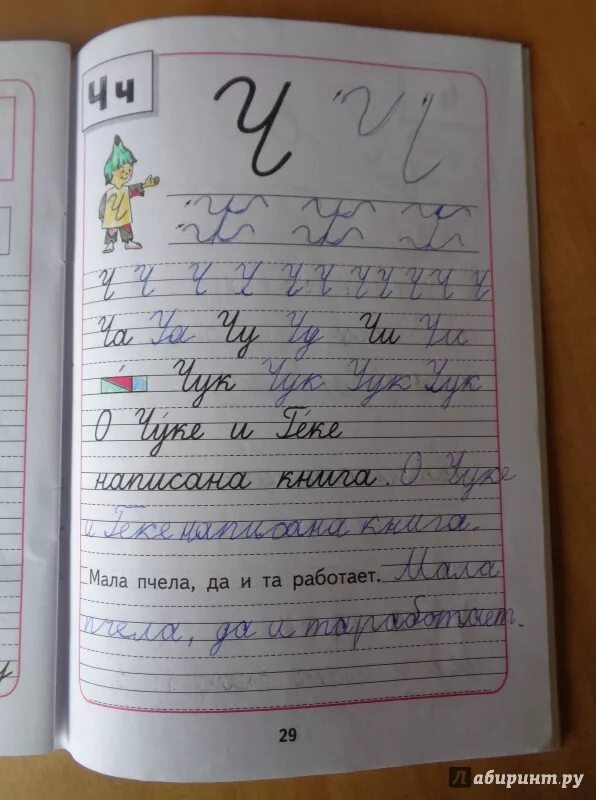 Ч ч
Ч
Ч
Ч Ч Ч Ч Ч Ч Ч Ч Ч Ч Ч
Ча Ча Чу Чу Чи Чи
Чук Чук Чук Чук
О Чу́ке и Ге́ке
написана книга. О Чуке
и Геке написана книга.
Мала пчела, да и та работает. Мала
пчела, да и та работает.
29
Лабиринт.ру